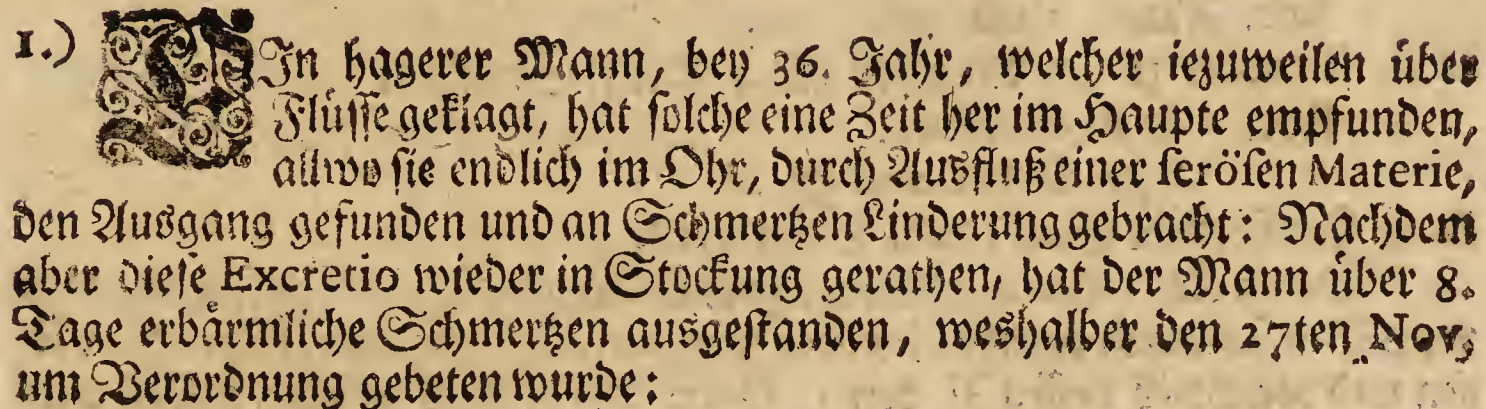 1.) EIn hagerer Mann, bey 36. Jahr, welcher iezuweilen über
Flüsse geklagt, hat solche eine Zeit her im Haupte empfunden,
allwo sie endlich im Ohr, durch Ausfluß einer serösen Materie,
den Ausgang gefunden und an Schmertzen Linderung gebracht: Nachdem
aber diese Excretio wieder in Stockung gerathen, hat der Mann über 8.
Tage erbärmliche Schmertzen ausgestanden, weshalber den 27ten Nov,
um Verordnung gebeten wurde: